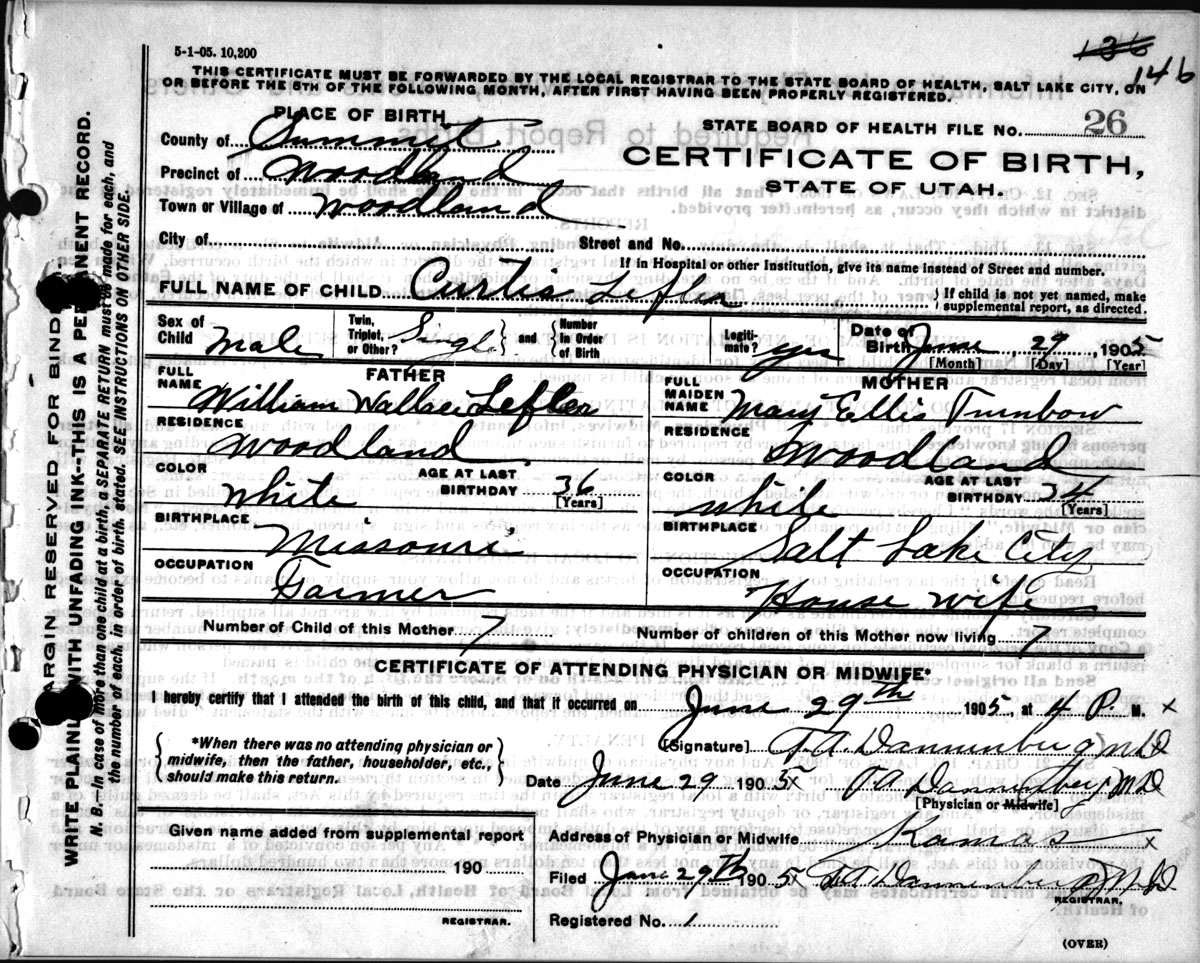 5-1-05. 10,200
136
146
THIS CERTIFICATE MUST BE FORWARDED BY THE LOCAL REGISTRAR TO THE STATE BOARD OF HEALTH, SALT LAKE CITY, ON
OR BEFORE THE 5TH OF THE FOLLOWING MONTH, AFTER FIRST HAVING BEEN PROPERLY REGISTERED.
PLACE OF BIRTH
County of Summit
Precinct of Woodland
Town or Village of Woodland
STATE BOARD OF HEALTH FILE No. 26
CERTIFICATE OF BIRTH,
STATE OF UTAH.
City of Street and No.
If in Hospital or other Institution, give its name instead of Street and number.
FULL NAME OF CHILD Curtis Lefler { If child is not yet named, make supplemental report, as directed.
Sex of Child Male Twin, Triplet, or Other? Single } and { Number In Order of Birth Legiti- mate? yes Date of Birth June, 29, 1905
[Month] [Day] [Year]
FATHER
FULL NAME William Wallace Lefler
RESIDENCE
Woodland
COLOR
White
AGE AT LAST BIRTHDAY 36
[Years]
BIRTHPLACE
Missouri
OCCUPATION
Farmer
MOTHER
FULL MAIDEN NAME Mary Elli Turnbow
RESIDENCE
Woodland
COLOR
White
AGE AT LAST BIRTHDAY 34
[Years]
BIRTHPLACE
Salt Lake City
OCCUPATION
House wife
Number of Child of this Mother 7
Number of children of this Mother now living 7
CERTIFICATE OF ATTENDING PHYSICIAN OR MIDWIFE*
I hereby certify that I attended the birth of this child, and that it occurred on June 29th 1905, at 4 P. M. x
{ *When there was no attending physician or
midwife, then the father, householder, etc.,
should make this return. }
[Signature] T.A. Dannenberg MD
Date June 29 1905 x TA Dannenberg MD
[Physician or Midwife]
Given name added from supplemental report
190
REGISTRAR.
Address of Physician or Midwife Kamas x
Filed June 29th 1905 x TA Dannenberg MD
REGISTRAR.
Registered No. 1
(OVER)
MARGIN RESERVED FOR BINDING
WRITE PLAINLY WITH UNFADING INK--THIS IS A PERMANENT RECORD.
N. B.--In case of more than one child at a birth, a SEPARATE RETURN must be made for each, and
the number of each, in order of birth, stated. SEE INSTRUCTIONS ON OTHER SIDE.